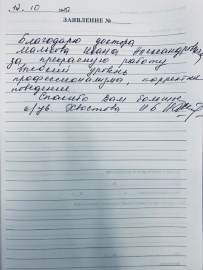 12.10
ЗАЯВЛЕНИЕ №
Благодарю доктора
Малкова Ивана Александровича
за прекрасную работу
высокий уровень
профессионализма, корректное
поведение.
Спасибо Вам большое
с/ув. Хвостова Н Б